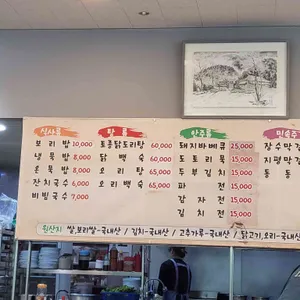 식사류
보리밥 10,000
냉묵밥 8,000
온묵밥 8,000
잔치국수 6,000
비빔국수 7,000
탕류
토종닭도리탕 60,000
닭백숙 60,000
오리탕 65,000
오리백숙 65,000
안주류
돼지바베큐 25,000
도토리묵 15,000
두부김치 15,000
파전 15,000
감자전 15,000
김치전 15,000
민속주
장수막
지평막
동동
원산지 쌀,보리쌀-국내산 / 김치-국내산 / 고추가루-국내산 / 닭고기,오리-국내산